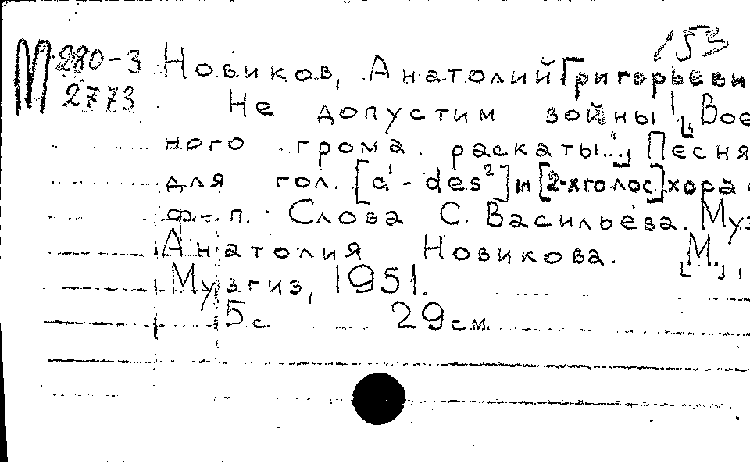 153
М 280-3 Новиков, Анатолий Григорьеви
2773. Не допустим войны! „Вое
ного грома раскаты..." Песня
для гол. [a¹ - des²] и [2-хголос] хора с
ф.-п. Слова С. Васильева. Муз
Анатолия Новикова. [М.],
Музгиз, 1951.
5 с. 29 см.